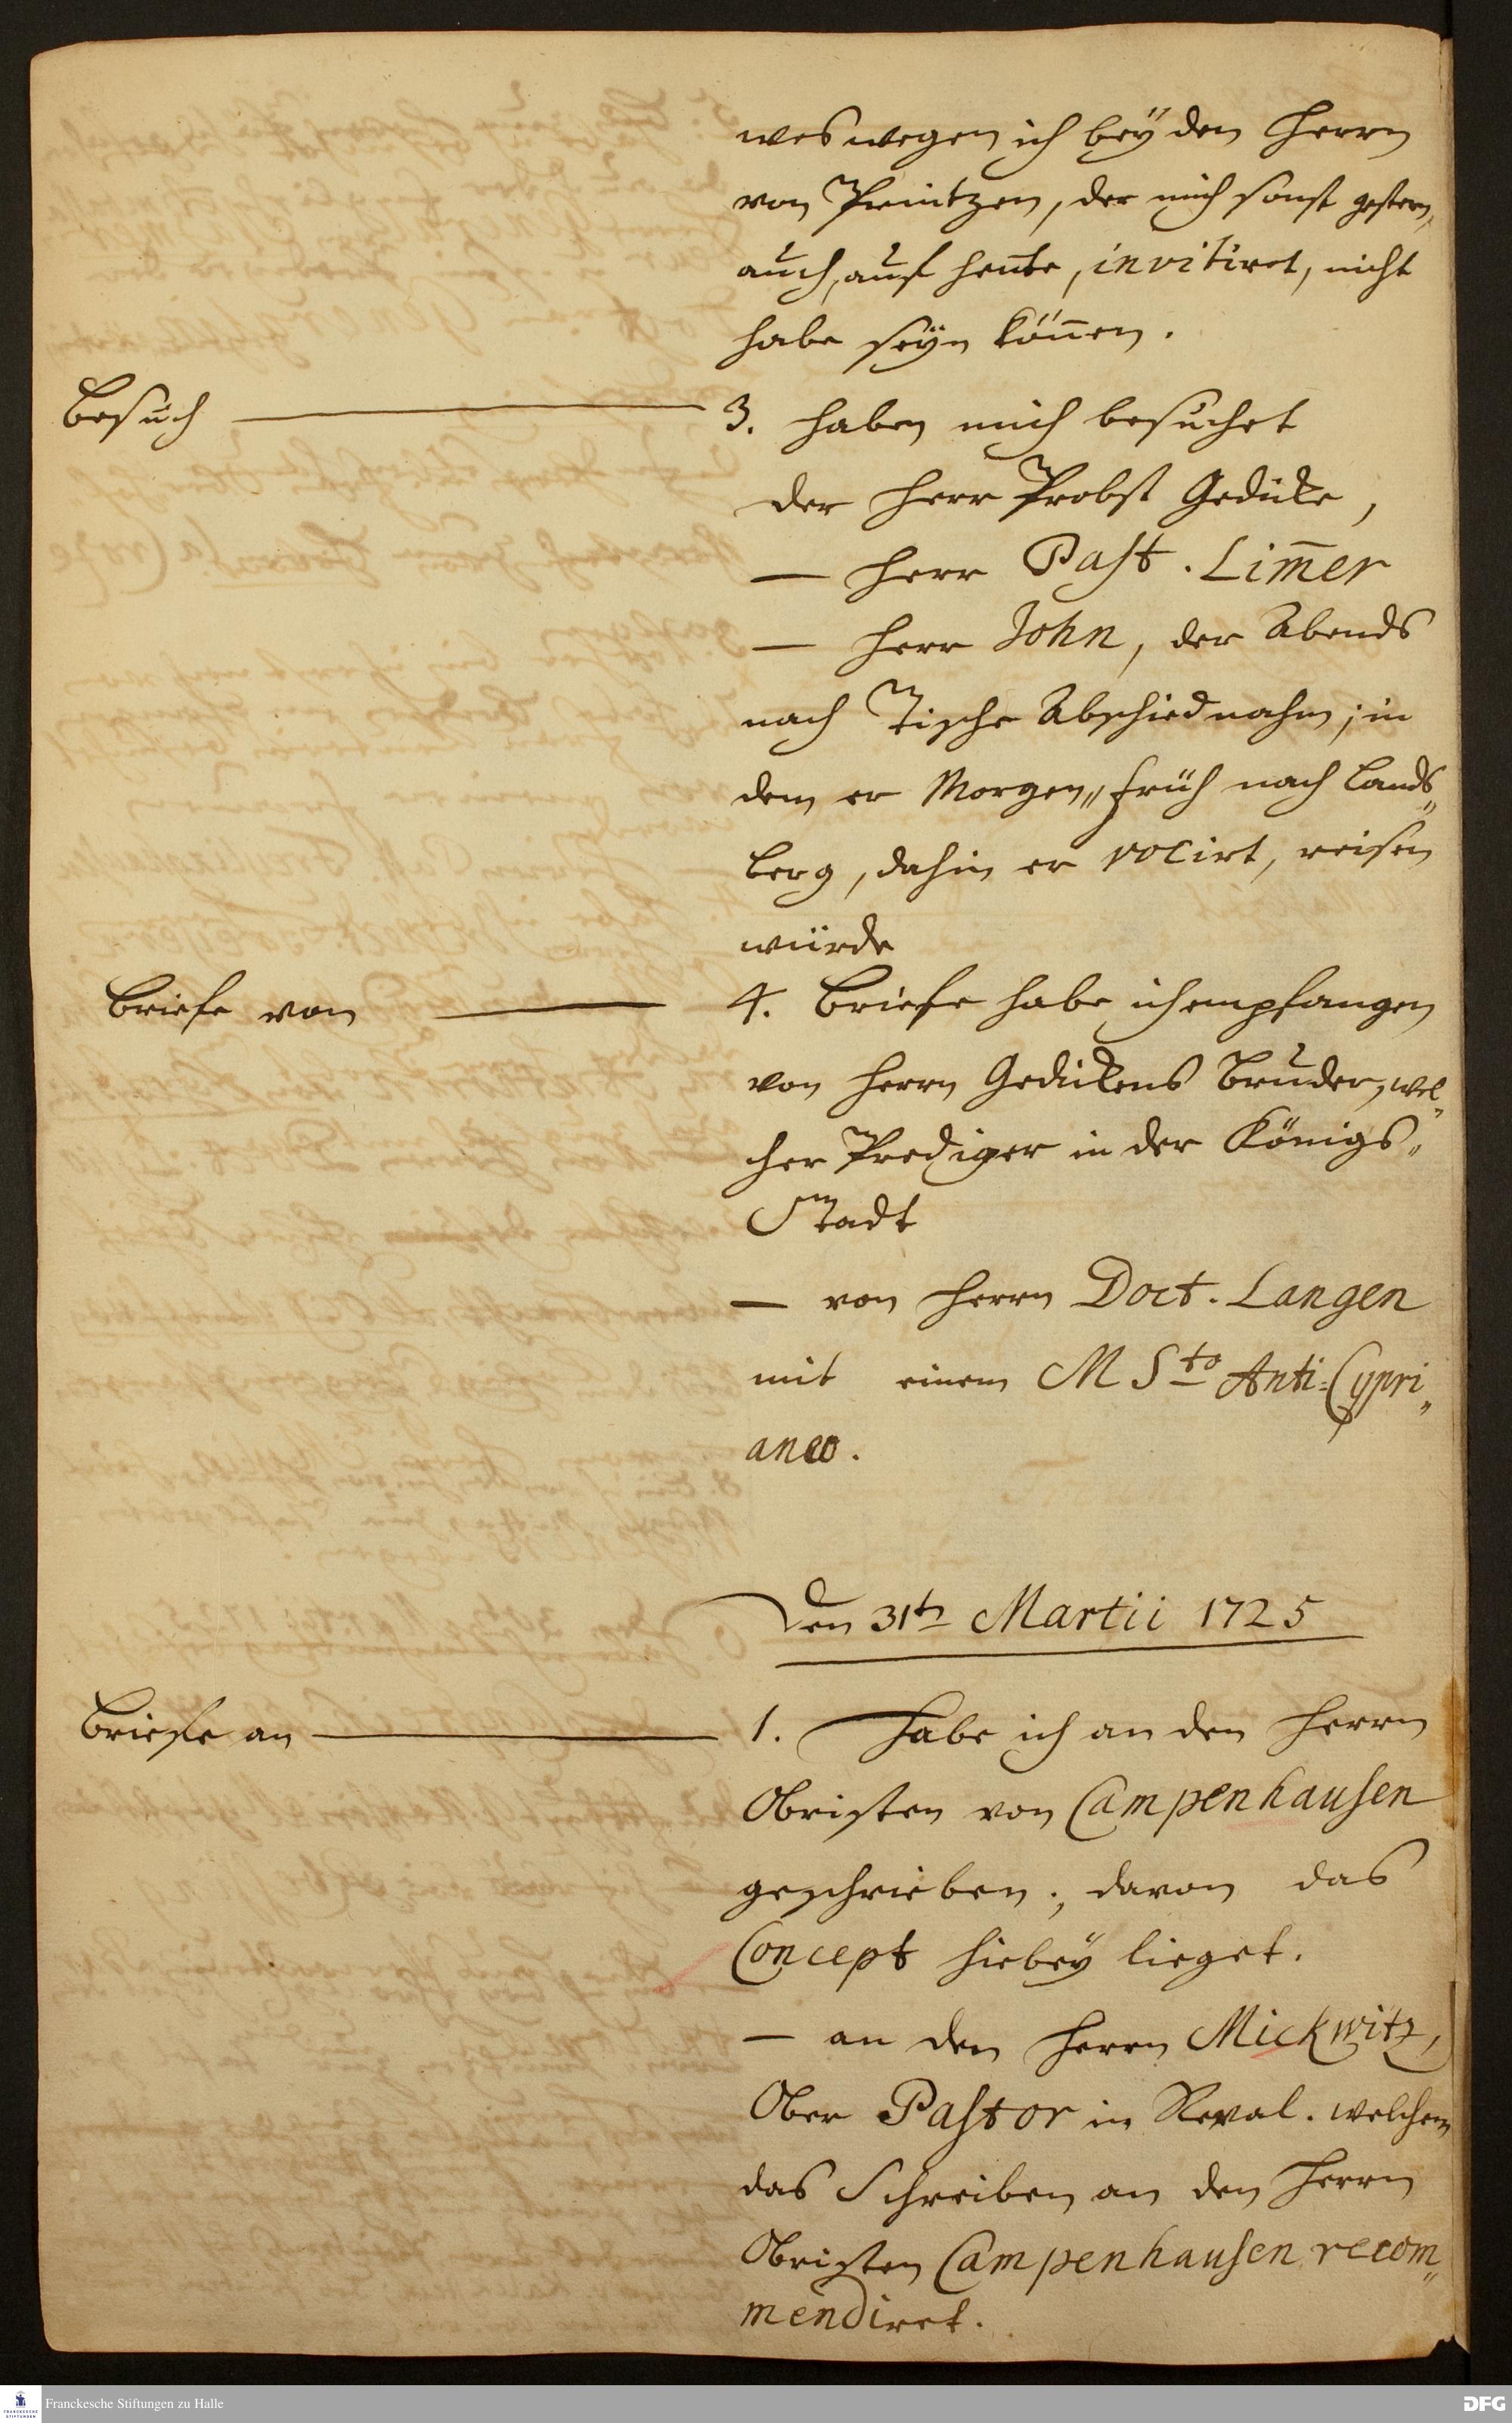 weswegen ich beÿ den Herrn
von Printzen, der mich sonst gestern,
auch, auf heute, invitiret, nicht
habe seÿn köñen.
Besuch — 3. haben mich besuchet
der Herr Probst Gedicke,
— Herr Past. Lim̃er
— Herr John, der Abends
nach Tische Abschied nahm; in
dem er Morgen„ früh nach Lands„
berg, dahin er vocirt, reisen
würde
Briefe von — 4. Briefe habe ich empfangen
von Herrn Gedickens Bruder, wel„
cher Prediger in der Königs„
Stadt
— von Herrn Doct. Langen
mit einem MSto Anti=Cypri„
aneo.
Den 31tn Martii 1725
Briefe an — 1. Habe ich an den Herrn
Obristen von Campenhausen
geschrieben; davon das
Concept hiebeÿ lieget.
— an den Herrn Mickwitz,
Ober Pastor in Reval. welchem
das Schreiben an den Herrn
Obristen Campenhausen recom„
mendiret.
Franckesche Stiftungen zu Halle
DFG